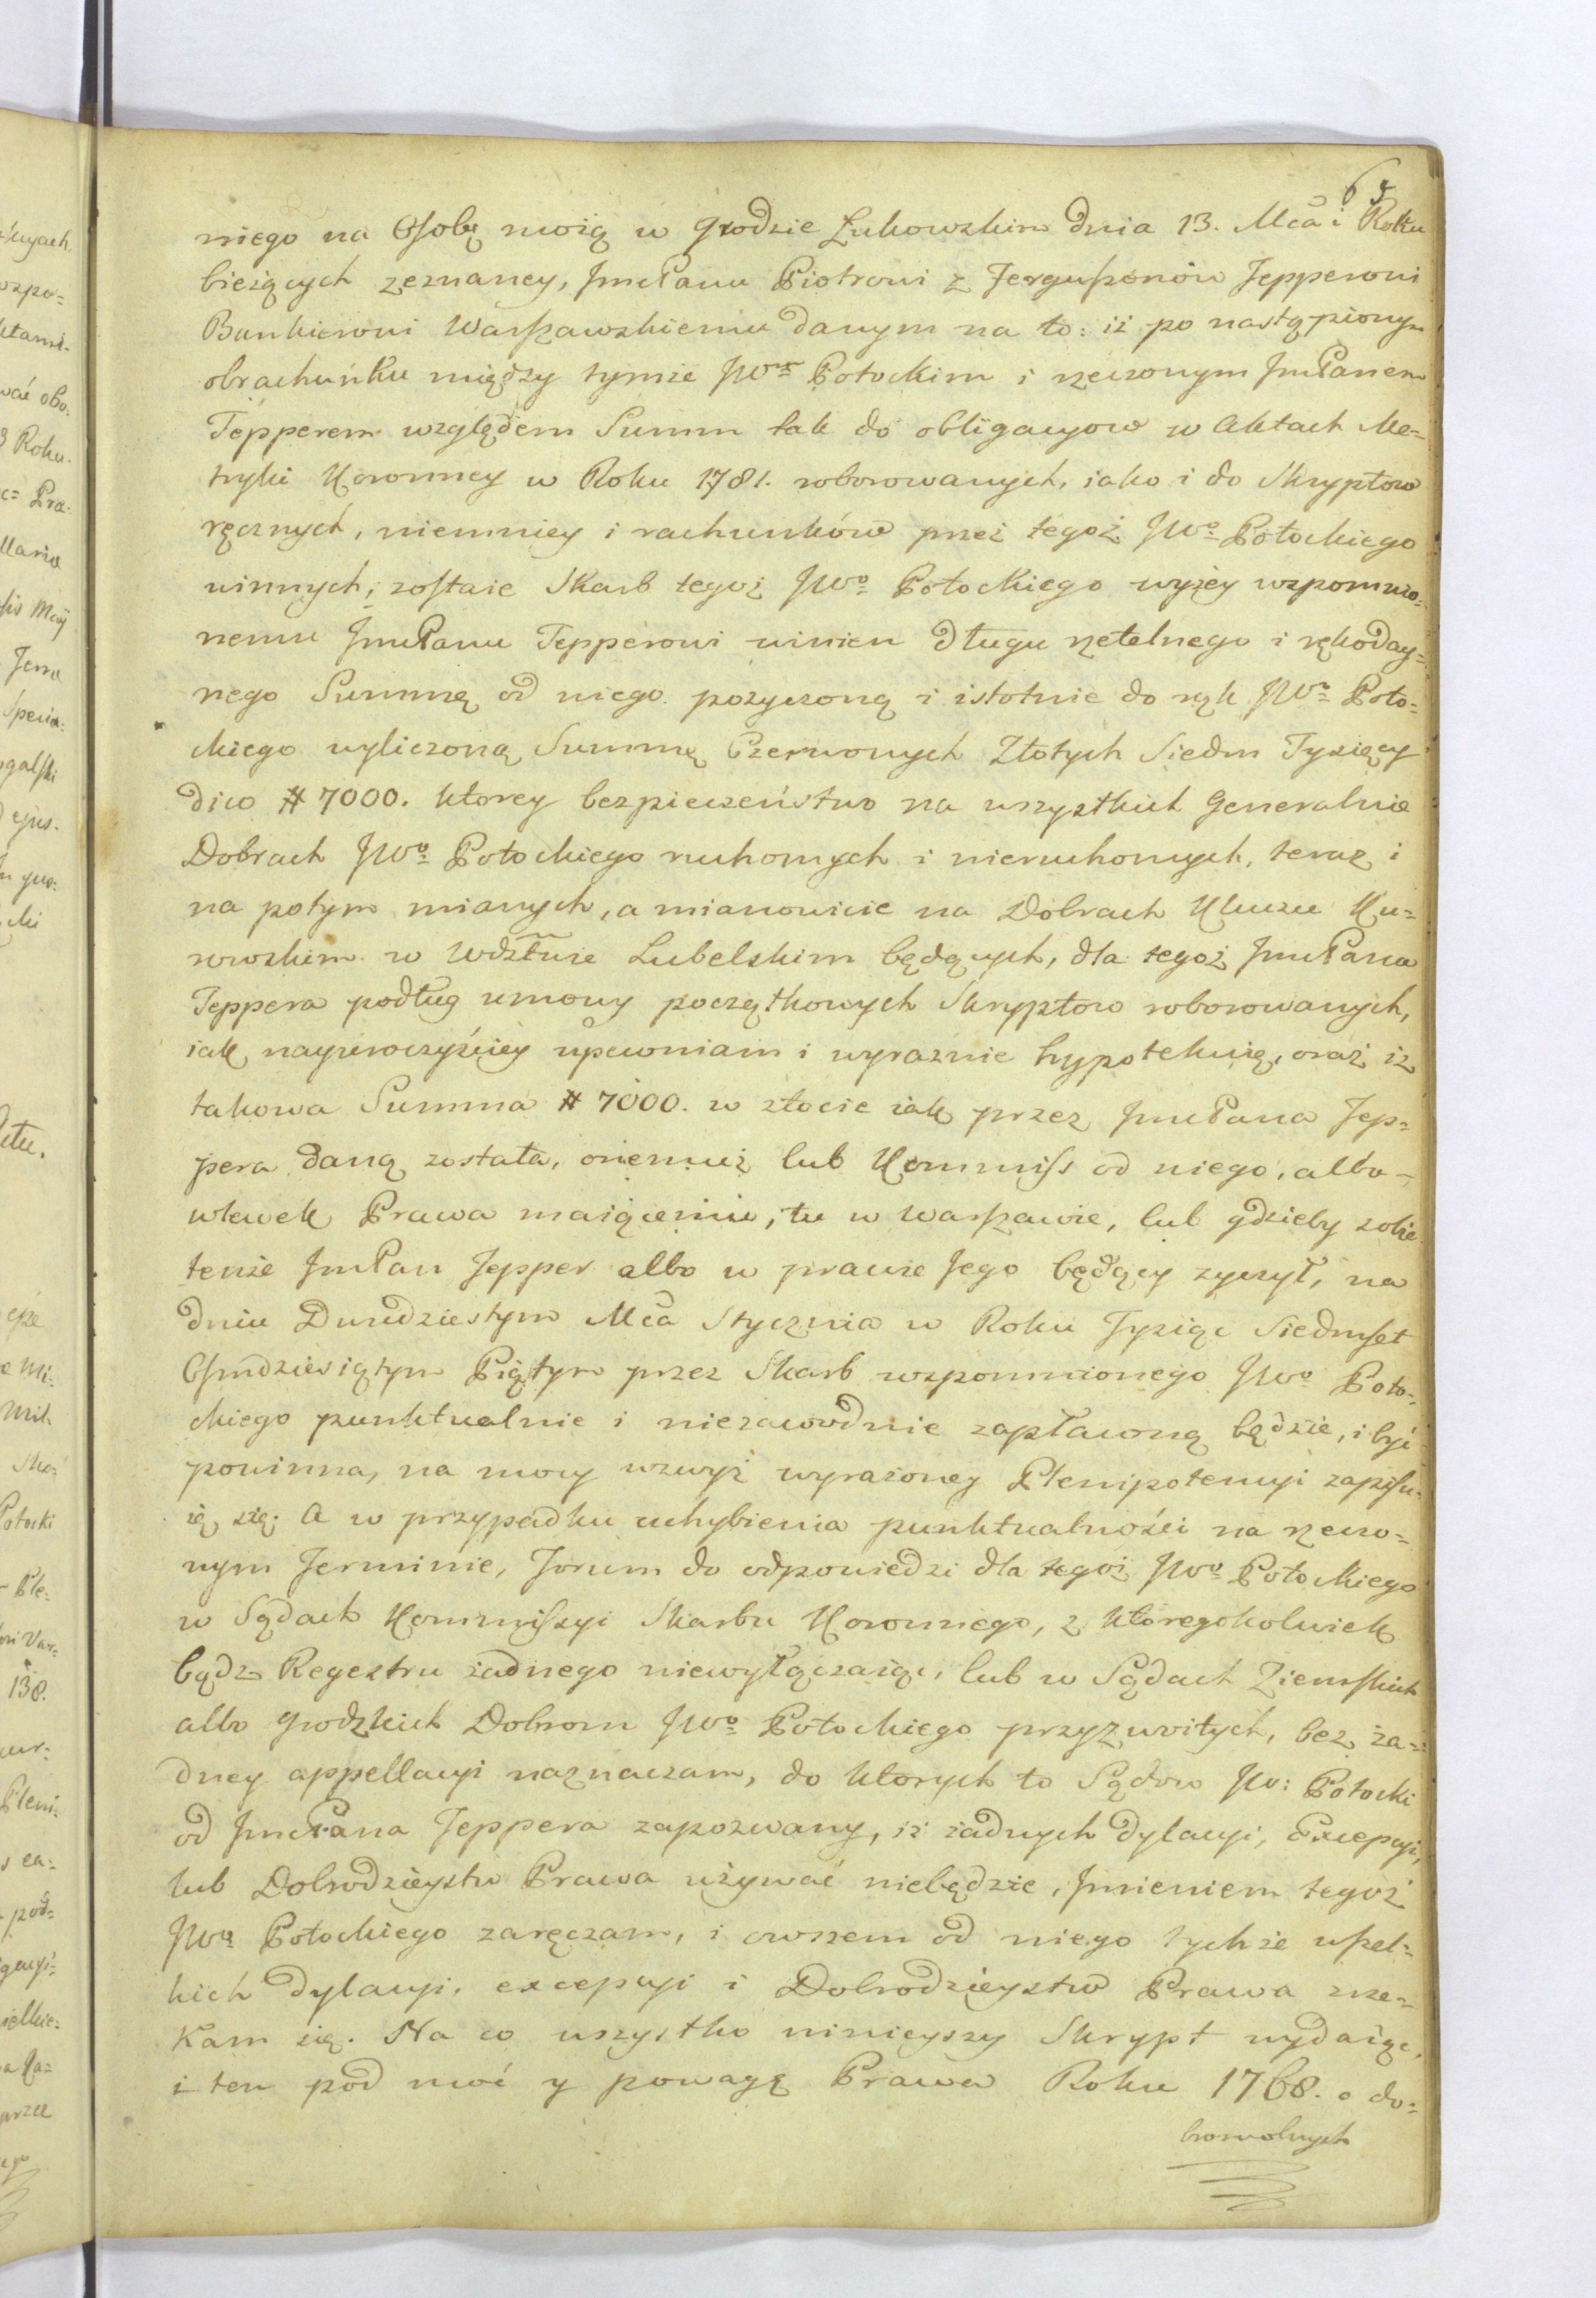 64
niego na Osobę moią w Grodzie Łukowskim dnia 13. Mca i Roku
bieżących zeznaney, JmcPanu Piotrowi z Fergussonów Tepperowi
Bankierowi Warszawskiemu danym na to: iż po nastąpionym
obrachuńku między tymże JWm Potockim i rzeczonym JmcPanem
Tepperem względem Summ tak do obligacyow w Aktach Me=
tryki Koronney w Roku 1781. roborowanych, iako i do Skryptow
ręcznych, niemniey i rachunków przez tegoż JWo Potockiego
winnych; zostaie Skarb tegoż JWo Potockiego wyżey wspomnio=
nemu JmcPanu Tepperowi winien długu rzetelnego i rękoday=
nego Summę od niego pozyczoną i istotnie do rąk JWo Poto=
ckiego wyliczoną Summę Czerwonych Złotych Siedm Tysięcy
dico # 7000. ktorey bezpieczeństwo na wszystkich Generalnie
Dobrach JWo Potockiego ruchomych i nieruchomych, teraz i
na potym mianych, a mianowicie na Dobrach Kluczu Ku=
rowskim w Wdztwie Lubelskim będących, dla tegoż JmcPana
Teppera podług umowy początkowych Skryptow roborowanych,
iak nayuroczyściey upewniam i wyraźnie hypotekuię, oraz iż
takowa Summa # 7000. w złocie iak przez JmcPana Tep=
pera daną została, onemuż lub Kommiss od niego, albo
wlewek Prawa maiącemu, tu w Warszawie, lub gdzieby sobie
tenże JmcPan Tepper albo w prawie Jego będący zyczył, na
dniu Dwudziestym Mca Stycznia w Roku Tysiąc Siedmset
Osmdziesiątym Piątym przez Skarb wspomnionego JWo Poto=
ckiego punktualnie i niezawodnie zapłaconą będzie, i być
powinna, na mocy wzwyż wyrażoney Plenipotencyi zapisu=
ię się. A w przypadku uchybienia punktualności na rzeczo=
nym Terminie, Forum do odpowiedzi dla tegoż JWo Potockiego
w Sądach Kommissyi Skarbu Koronnego, z ktoregokolwiek
bądz Regestru żadnego niewyłączaiąc, lub w Sądach Ziemskich
albo Grodzkich Dobrom JWo Potockiego przyzwoitych, bez ża=
dney appellacyi naznaczam, do ktorych to Sądow JW: Potocki
od JmcPana Teppera zapozwany, iż żadnych dylacyi, Excepcyi,
lub Dobrodzieystw Prawa używać niebędzie, Jmieniem tegoż
JWo Potockiego zaręczam, i owszem od niego tychże wszel=
kich dylacyi, excepcyi i Dobrodzieystw Prawa zrze=
kam się. Na co wszystko ninieyszy Skrypt wydaiąc,
i ten pod moc y powagę Prawa Roku 1768. o do=
browolnych